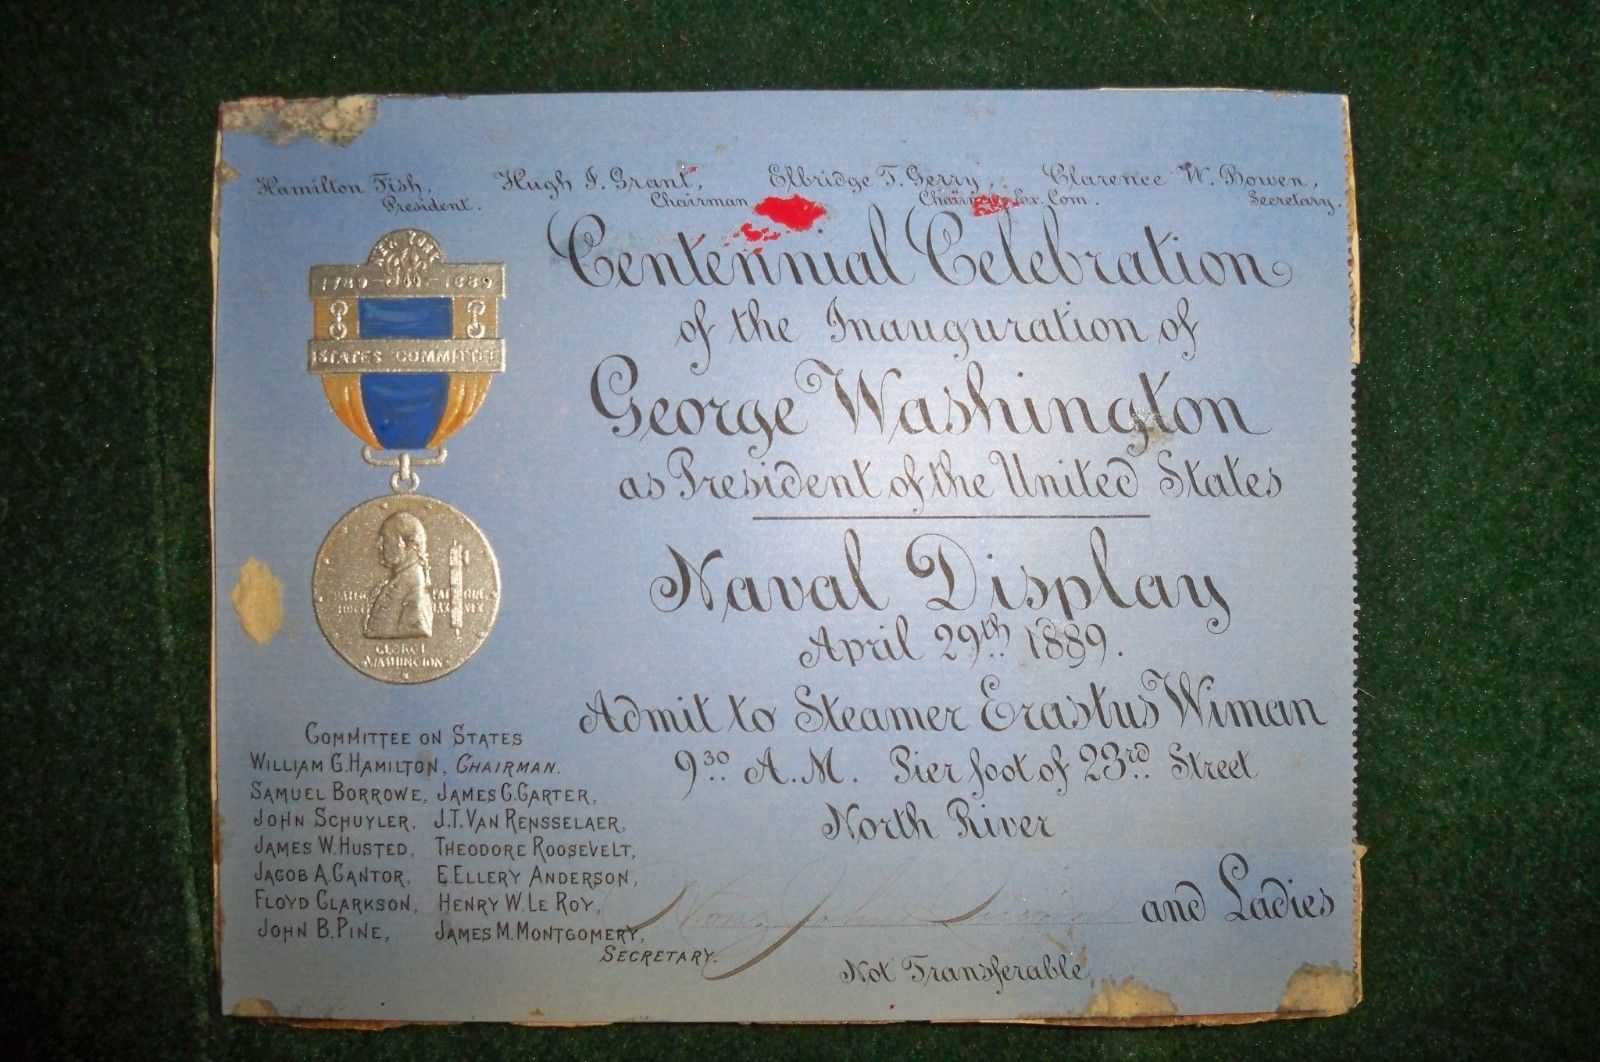 Hamilton Fish, Hugh J. Grant, Elbridge T. Gerry, Clarence W. Bowen,
President. Chairman Chairman Ex. Com. Secretary.
Centennial Celebration
of the Inauguration of
George Washington
as President of the United States
Naval Display
April 29th 1889.
Admit to Steamer Erastus Wiman
9 30 A.M. Pier foot of 23rd Street
North River
Hon. John and Ladies
Not Transferable
NEW YORK
1789 - 1889
STATES COMMITTEE
GEORGE
WASHINGTON
COMMITTEE ON STATES
WILLIAM G. HAMILTON, CHAIRMAN.
SAMUEL BORROWE, JAMES C. CARTER,
JOHN SCHUYLER, J.T. VAN RENSSELAER,
JAMES W. HUSTED, THEODORE ROOSEVELT,
JACOB A. CANTOR, E ELLERY ANDERSON,
FLOYD CLARKSON, HENRY W. LE ROY,
JOHN B. PINE, JAMES M. MONTGOMERY,
SECRETARY.